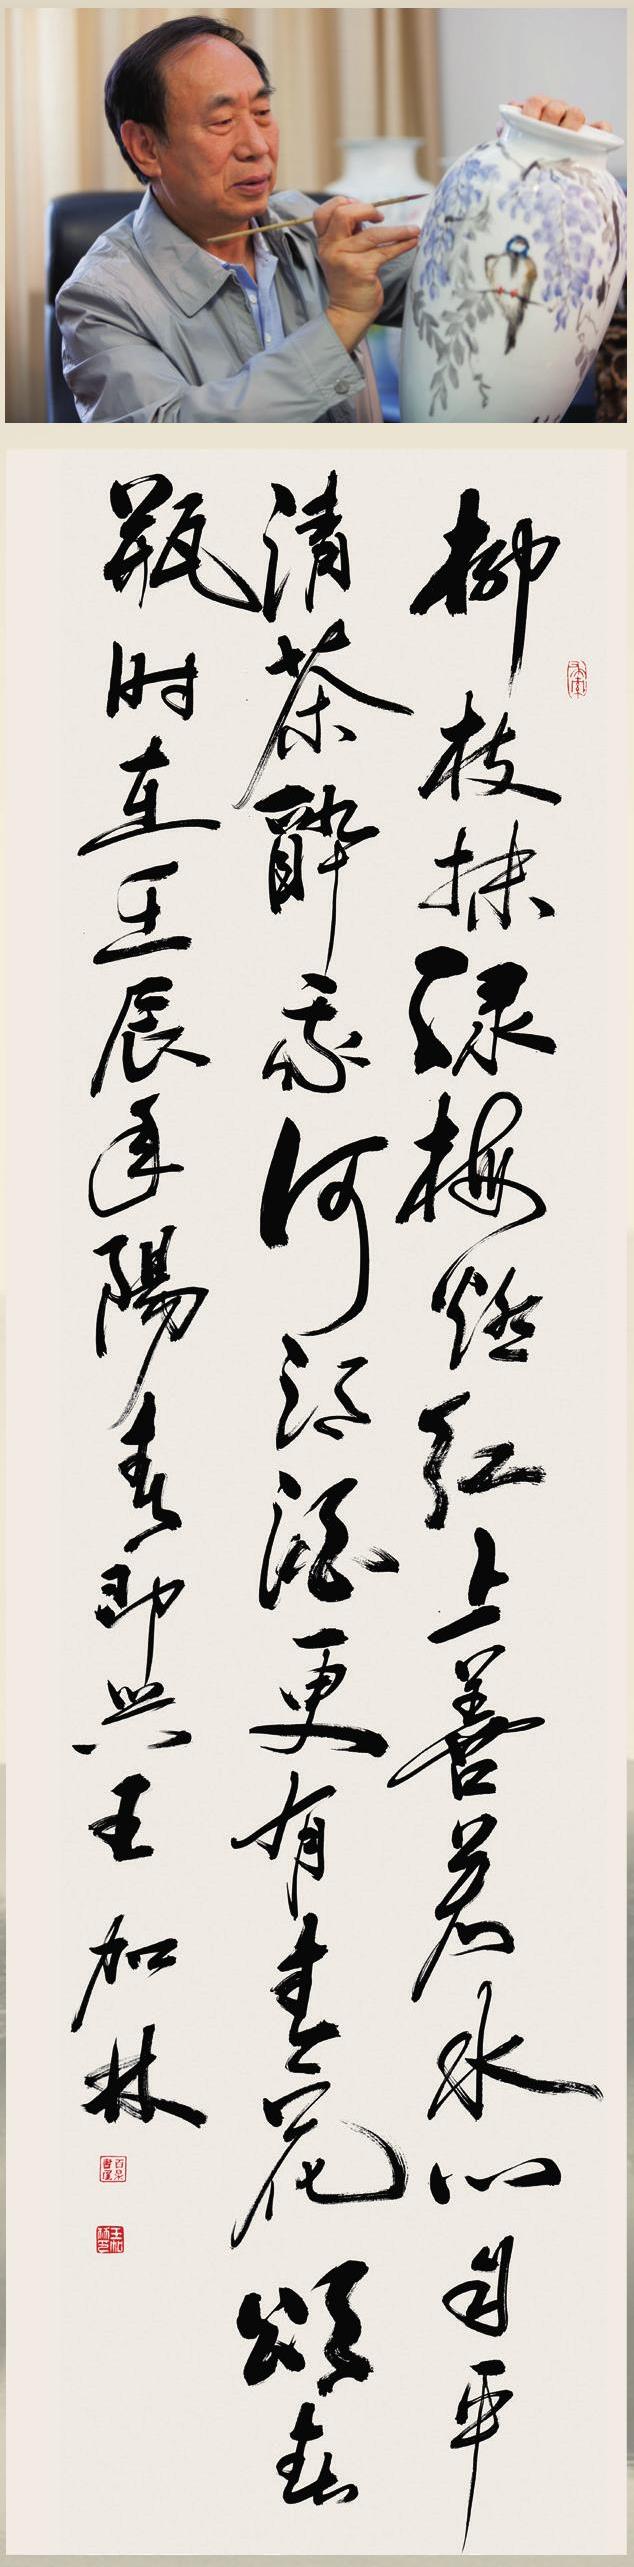 柳枝抹绿梅燃红上善若水心自平
清茶醉我何须酒更有青花頌春
瓶时在壬辰年陽春即兴王加林